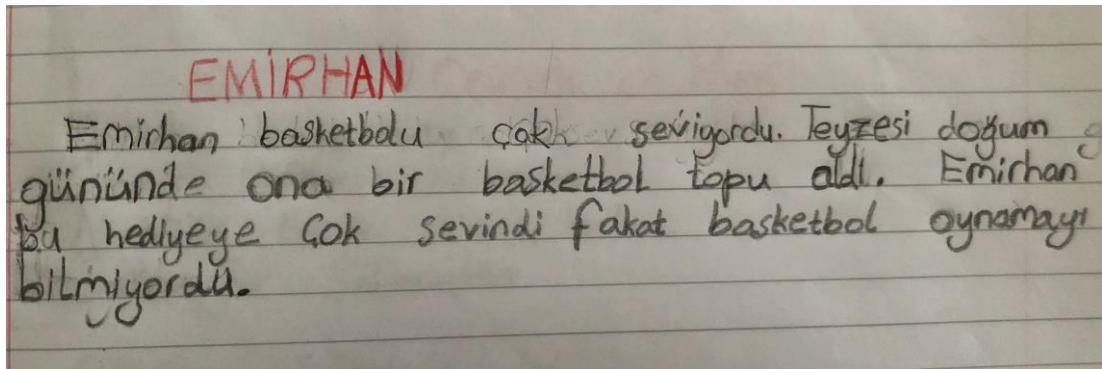 EMİRHAN
Emirhan basketbolu çok seviyordu. Teyzesi doğum
gününde ona bir basketbol topu aldı. Emirhan
bu hediyeye çok sevindi fakat basketbol oynamayı
bilmiyordu.